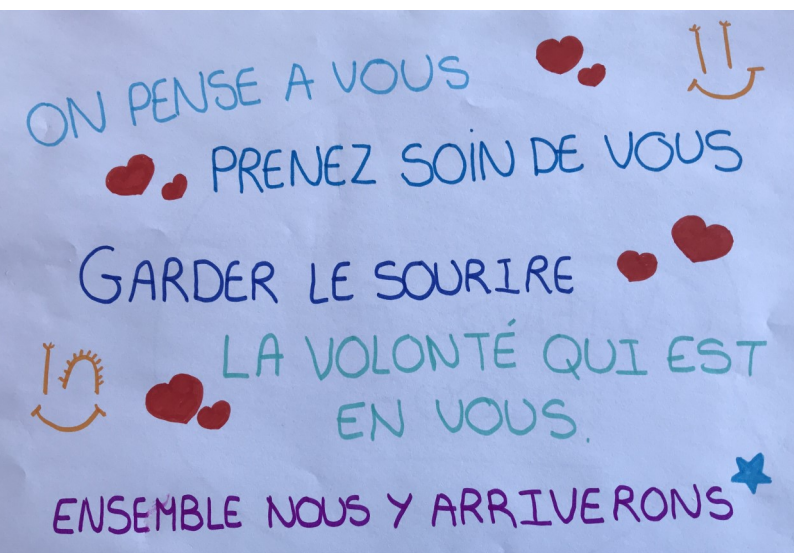 ON PENSE A VOUS
PRENEZ SOIN DE VOUS
GARDER LE SOURIRE
LA VOLONTÉ QUI EST
EN VOUS.
ENSEMBLE NOUS Y ARRIVERONS